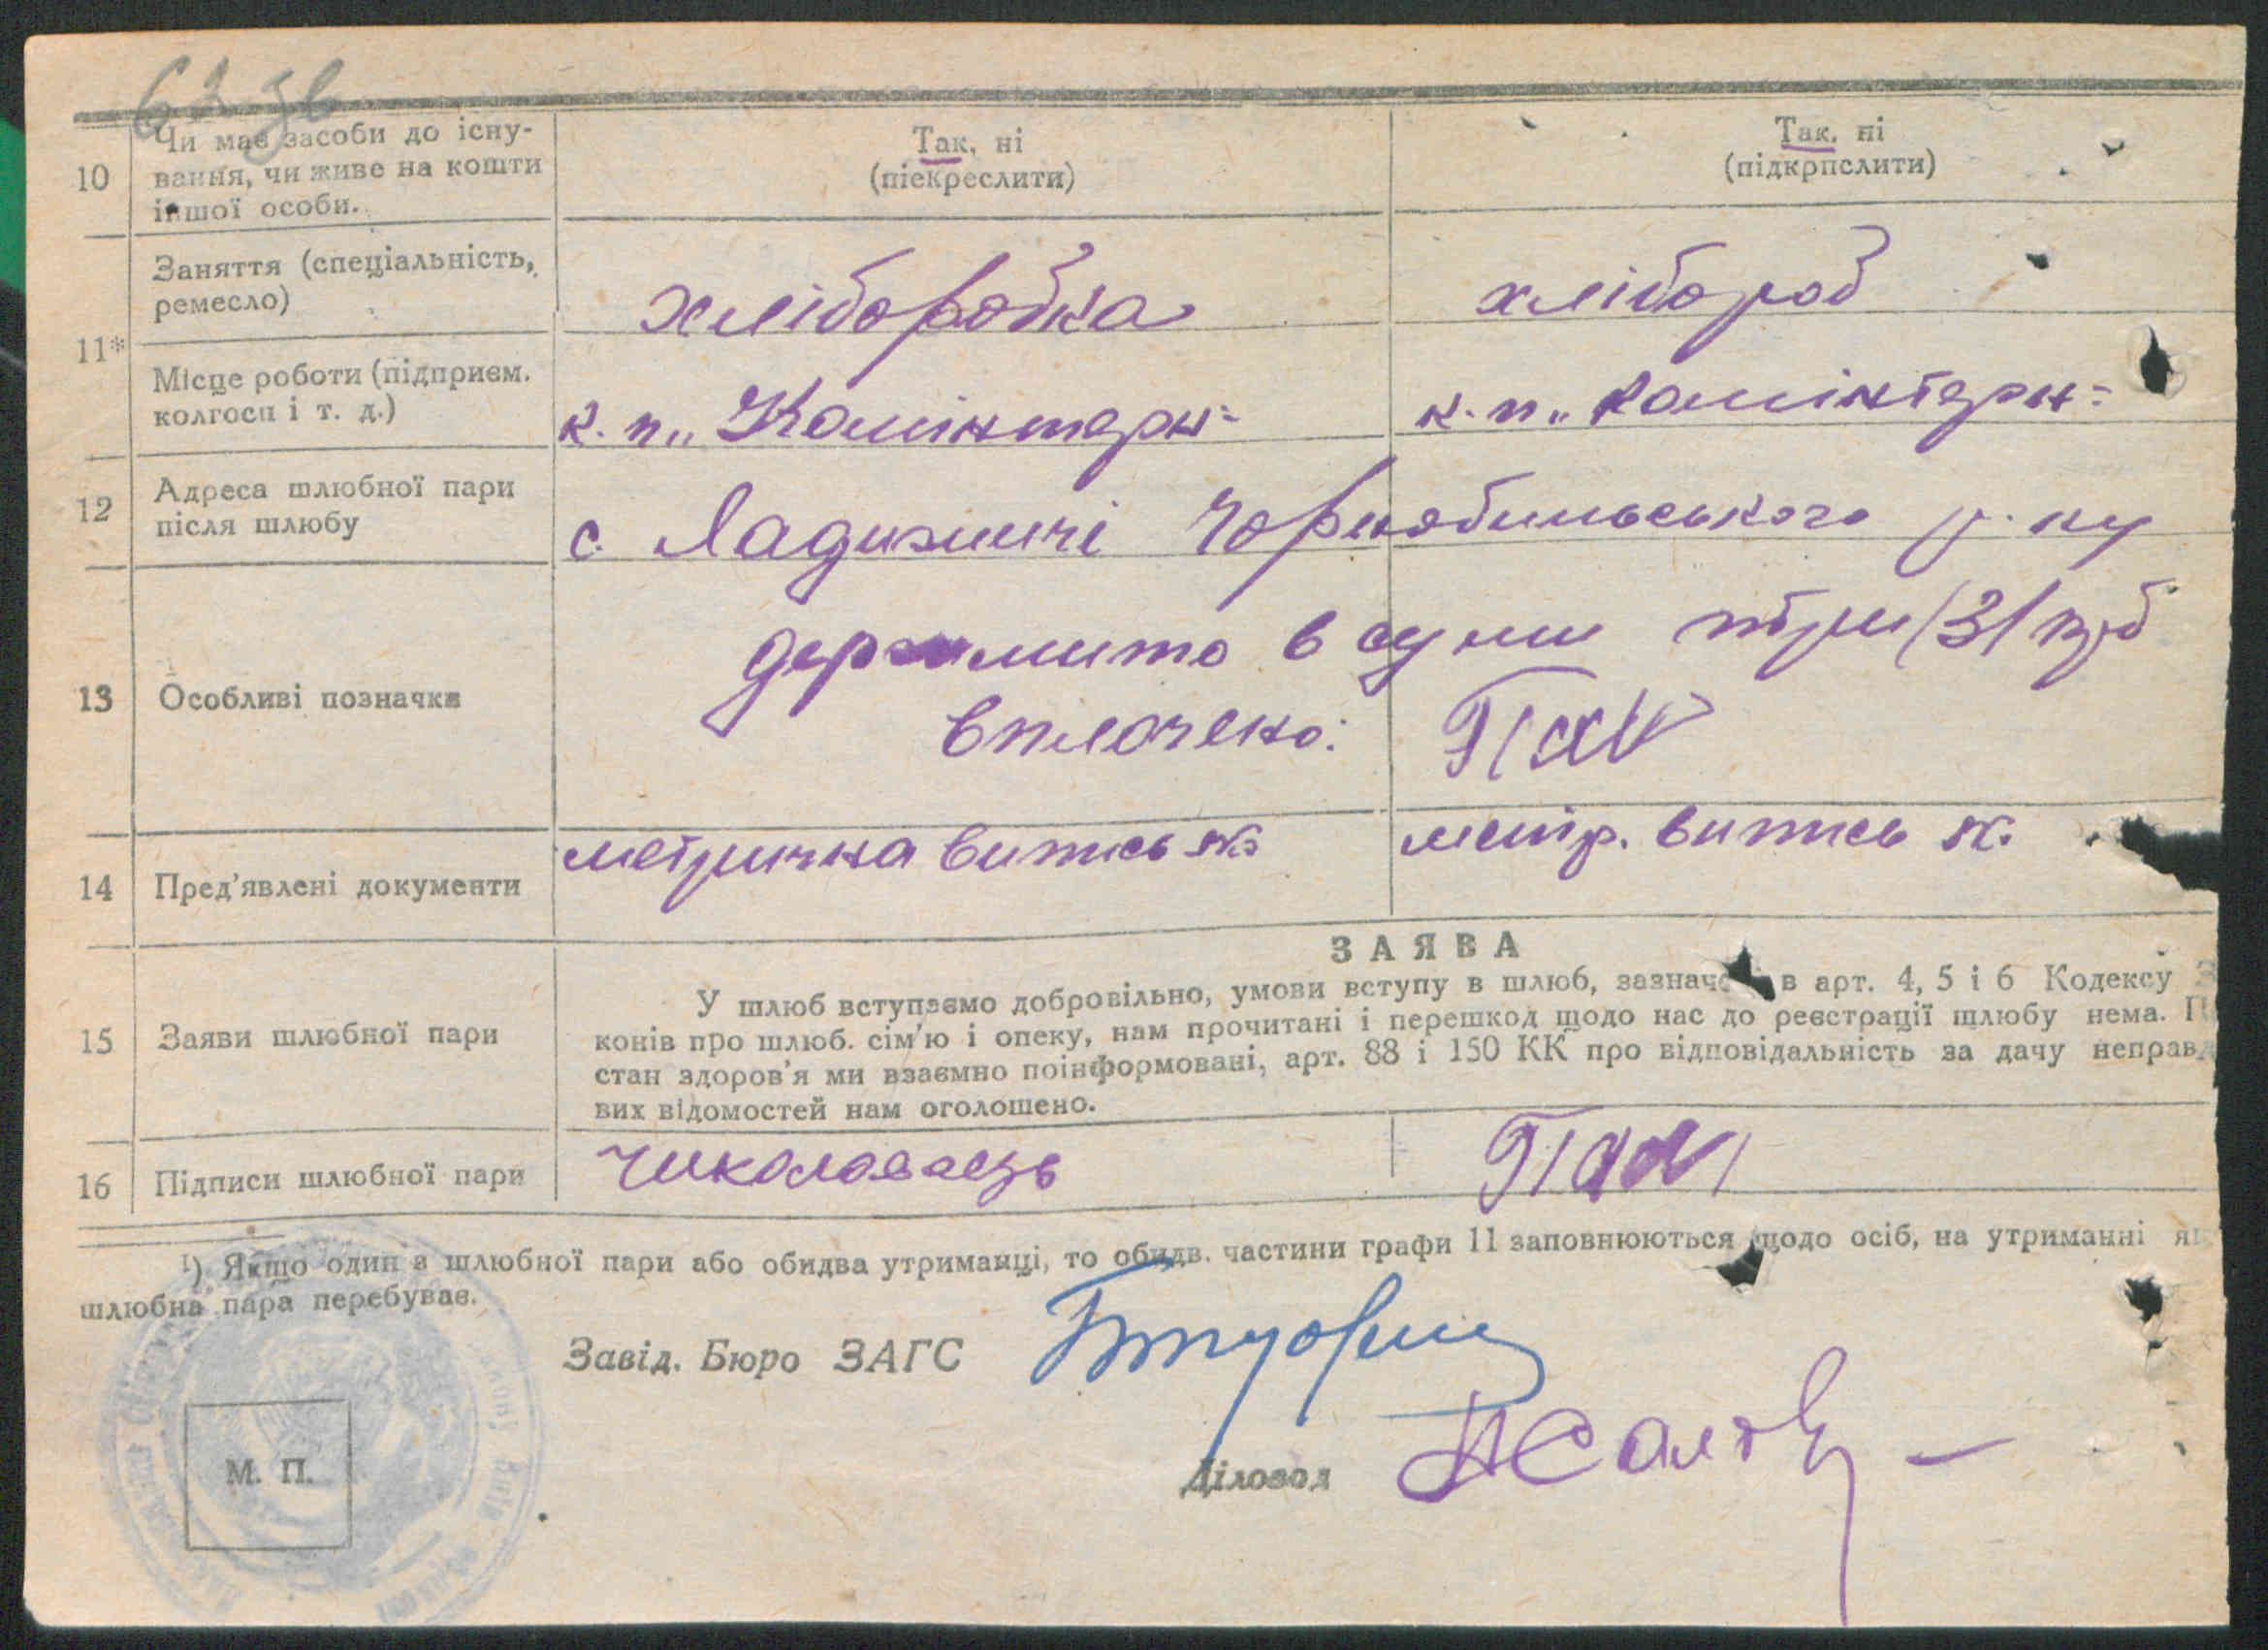 10 Чи має засоби до існу-
вання, чи живе на кошти
іншої особи.
Так, ні
(піекреслити)
Так, ні
(підкрпслити)
11*
Заняття (спеціальність,
ремесло)
хліборобка
хлібороб
Місце роботи (підприєм.
колгосп і т. д.)
к. п „Комінтерн"
к. п „Комінтерн"
12 Адреса шлюбної пари
після шлюбу
с. Ладижичі Чорнобильського р-ну
13 Особливі позначки
держмито в сумі три /3/ крб
вплочено:
14 Пред'явлені документи
метрична випись
метр. випись
ЗАЯВА
15 Заяви шлюбної пари
У шлюб вступаємо добровільно, умови вступу в шлюб, зазначе в арт. 4, 5 і 6 Кодексу З
конів про шлюб. сім'ю і опеку, нам прочитані і перешкод щодо нас до реєстрації шлюбу нема. П
стан здоров'я ми взаємно поінформовані, арт. 88 і 150 КК про відповідальність за дачу неправд
вих відомостей нам оголошено.
16 Підписи шлюбної пари
¹) Якщо один з шлюбної пари або обидва утриманці, то обидв. частини графи 11 заповнюються щодо осіб, на утриманні як
шлюбна пара перебуває.
Завід. Бюро ЗАГС
Діловод
М. П.